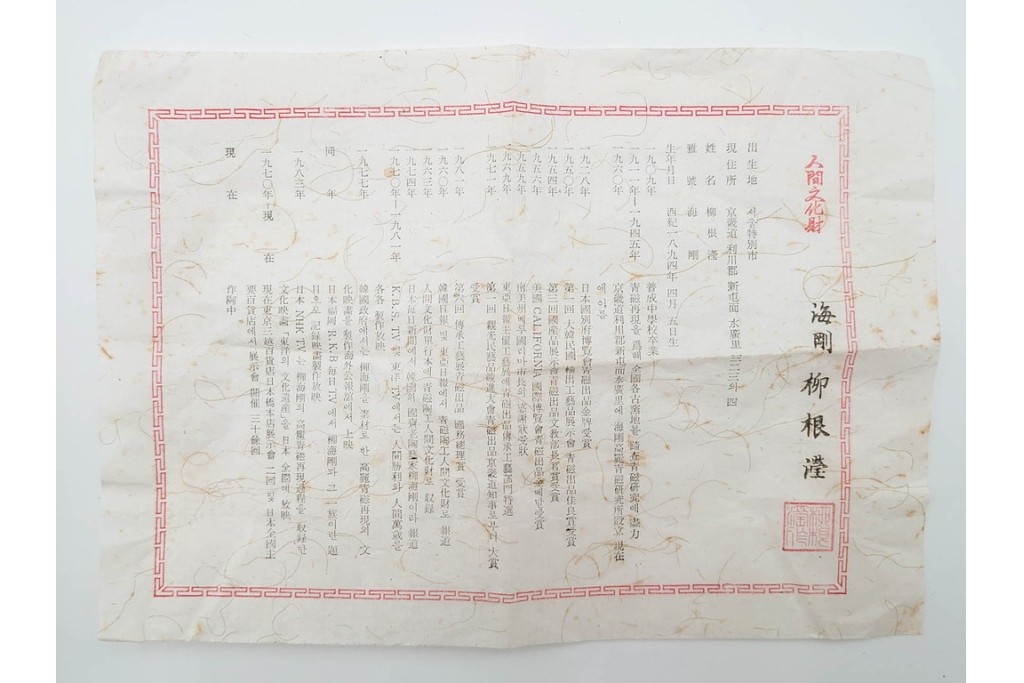 人間文化財
海剛 柳根瀅
出生地 서울特別市
現住所 京畿道 利川郡 新屯面 水廣里 三二三의 四
姓名 柳根瀅
雅號 海剛
生年月日 西紀一八九四年 四月 五日生
一九〇九年 普成中學校卒業
一九一一年―一九四五年 青磁再現을 爲해 全國各古窯地를 踏査青磁研究에 盡力
一九六〇年 京畿道利川郡新屯面水廣里에 海剛高麗青磁研究所設立 現在
에 이름
一九二八年 日本國別府博覽會青磁出品金牌受賞
一九五〇年 第一回 大韓民國 輸出工藝品展示會 青磁出品佳良賞受賞
一九五四年 第三回國產品展示會青磁出品文教部長官賞受賞
一九五六年 美國 CALIFORNIA 國際博覽會青磁出品
一九五九年 南美州페루國리마市長의 感謝狀受狀
一九六九年 東亞日報主催工藝展에青磁出品傳承工藝部門特選
一九七一年 第一回 觀光民藝品競進大會青磁出品京畿道知事로부터 大賞
受賞
一九八一年 第六回 傳承工藝展青磁出品 國務總理賞 受賞
一九六〇年 韓國日報 및 東亞日報에서 青磁陶工人間文化財로 報道
一九六三年 人間文化財單行本에 青磁陶工人間文化財로 収録
一九七四年 日本每日新聞에서 韓國의 國寶的陶藝家柳海剛이라 報道
一九七〇年―一九八一年 K.B.S. TV 및 東洋 TV에서는 人間勝利와 人間萬歲를
各各 製作放映
一九七七年 韓國政府에서는 柳海剛을 素材로 한 高麗青磁再現의 文
化映畵를 製作海外公報館에서 上映
同年 日本福岡 R.K.B 每日TV에서 柳海剛과 그 一族이란 題
目으로 記録映畵製作放映
一九八三年 日本 NHK TV는 柳海剛의 高麗青磁再現過程을 収録한
文化映畵「東洋의 文化遺產」을 日本 全國에 放映
一九七〇年―現在 現在東京三越百貨店日本橋本店展示會 二回 및 日本全國主
要百貨店에서 展示會 開催 三十餘回
現在 作陶中